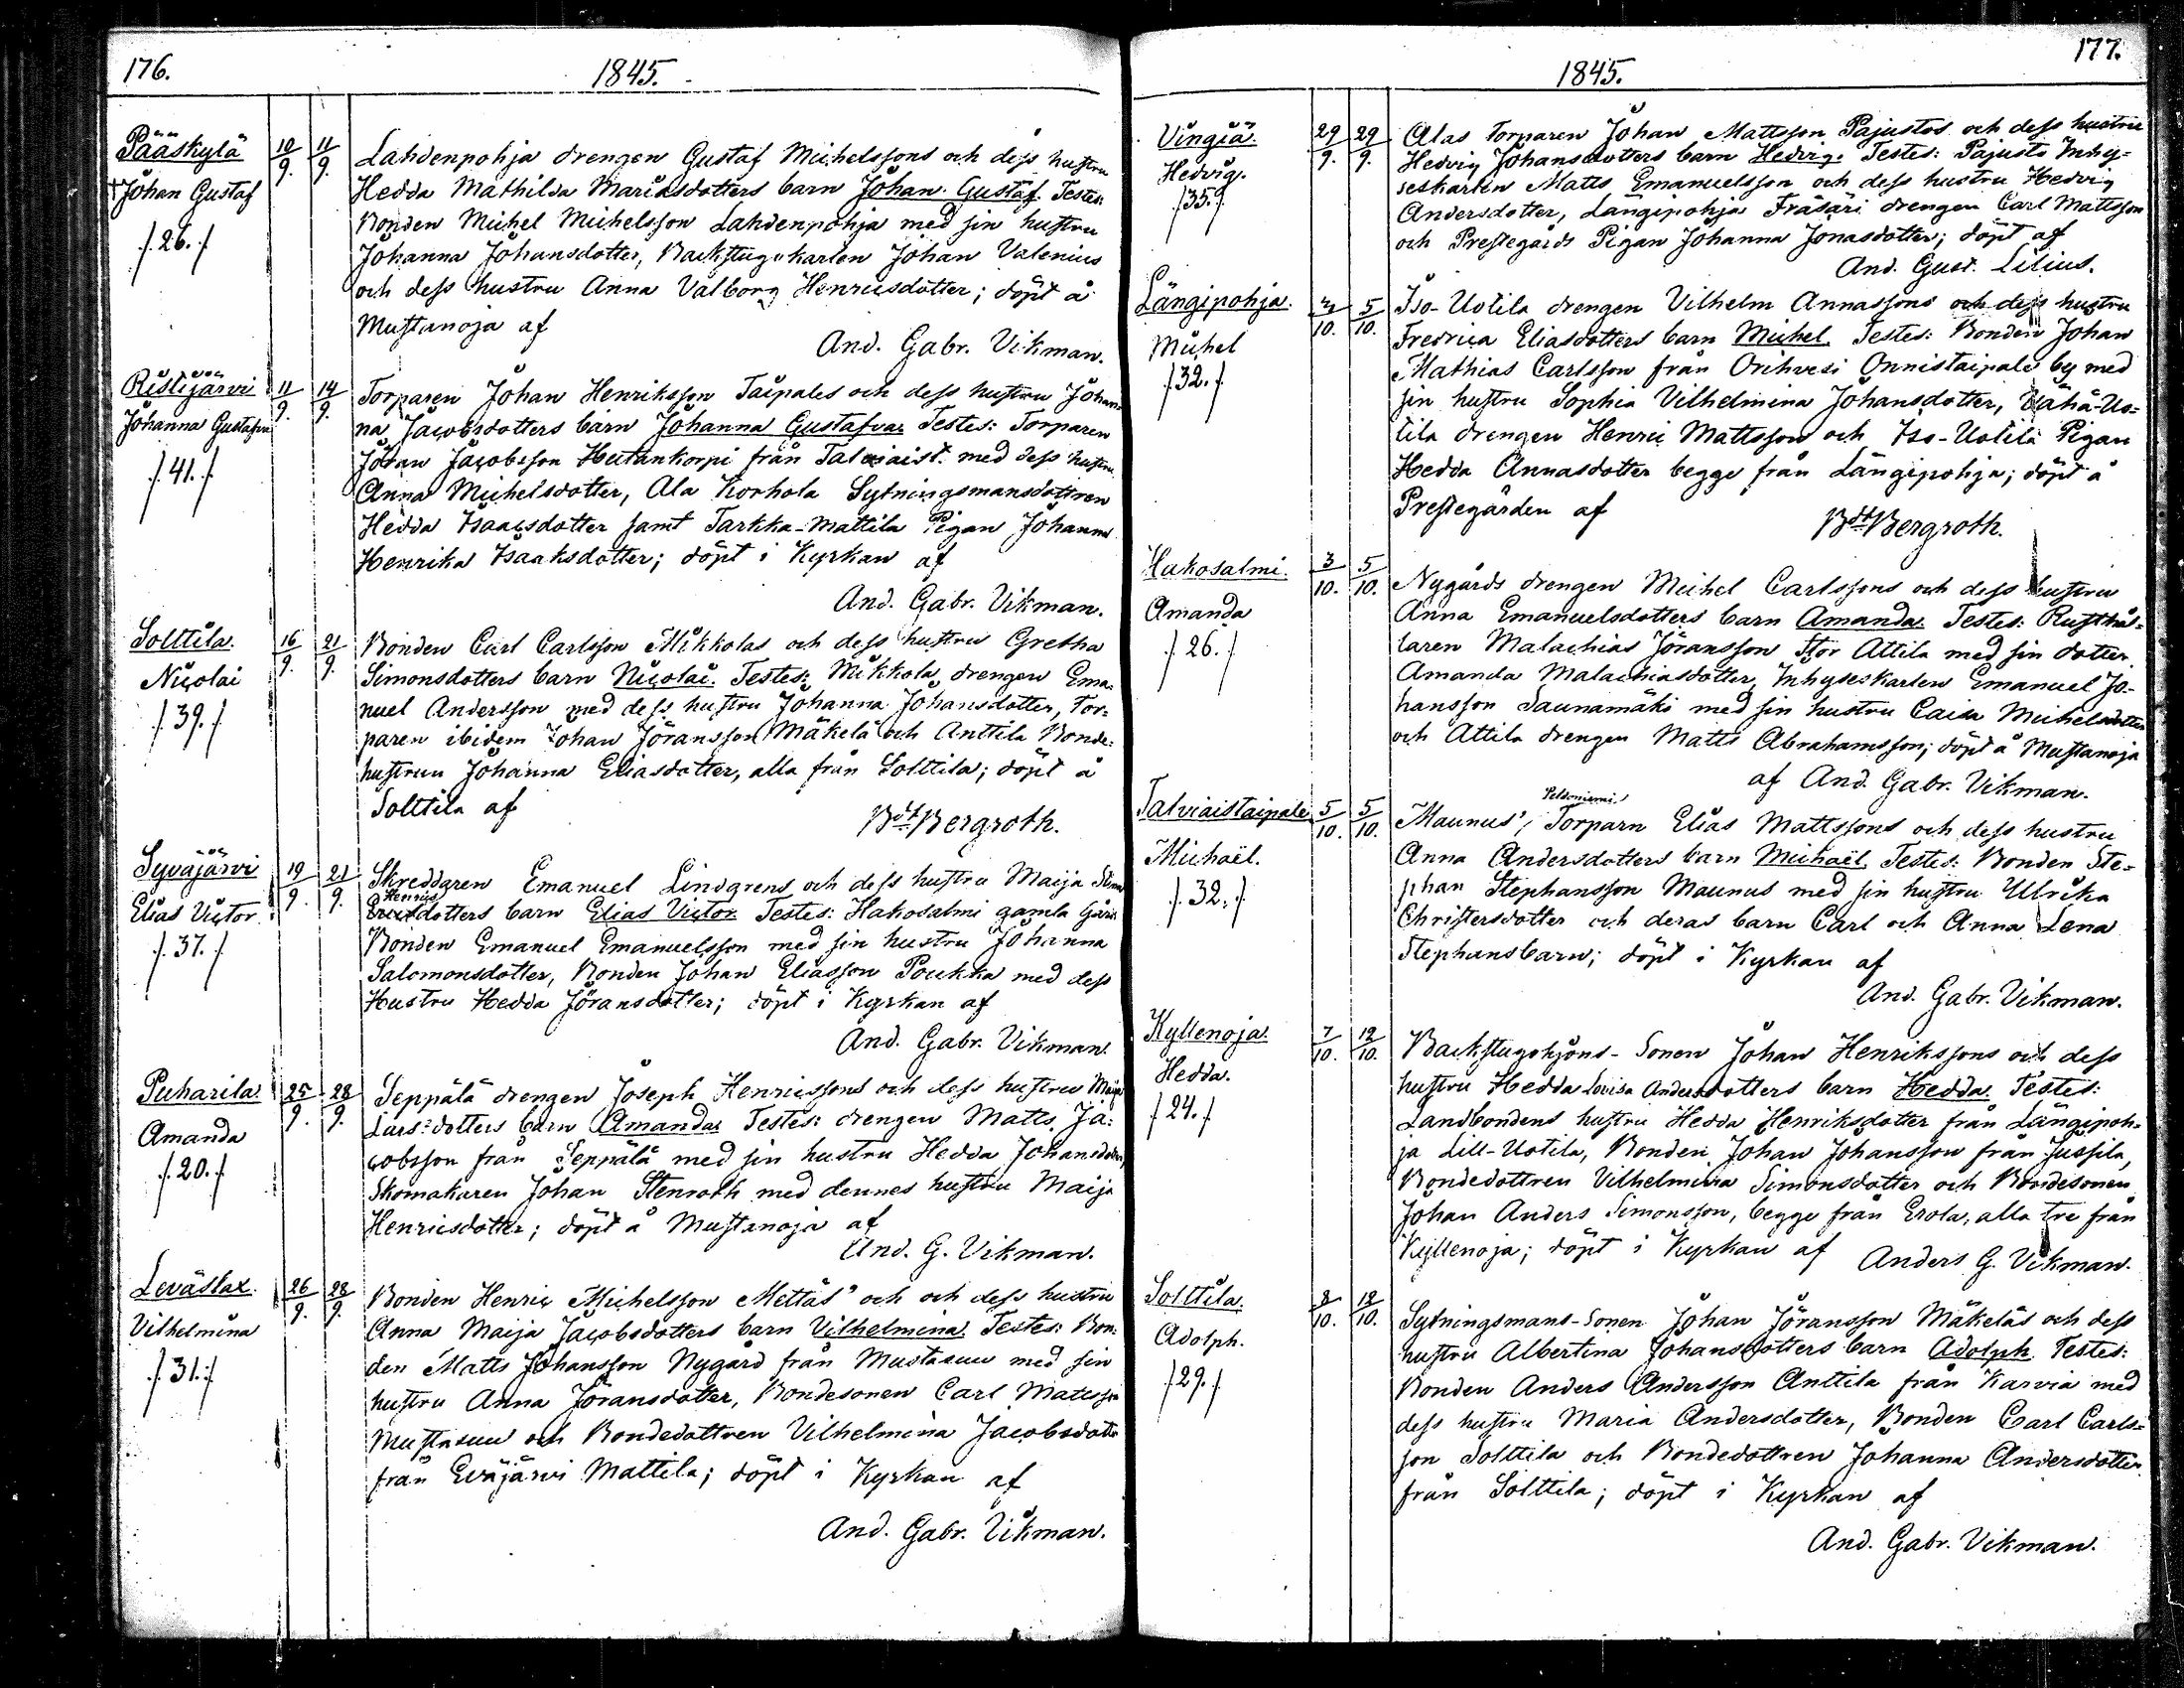 176.
1845.
Pääskylä
10/9. 11/9.
†Johan Gustaf
/.26./
Lahdenpohja drengen Gustaf Michelssons och dess hustru
Hedda Mathilda Mariasdotters barn Johan Gustaf. Testes:
Bonden Michel Michelsson Lahdenpohja med sin hustru
Johanna Johansdotter, Backstugukarlen Johan Valenius
och dess hustru Anna Valborg Henricsdotter; döpt å
Mustanoja af
And. Gabr. Vikman.
Ristijärvi
11/9. 14/9.
Johanna Gustafva
/.41./
Torparen Johan Henriksson Taipales och dess hustru Johan-
na Jacobsdotters barn Johanna Gustafva. Testes: Torparen
Johan Jacobsson Hutankorpi från Talviaist. med dess hustru
Anna Michelsdotter, Ala Korhola Sytningsmansdottren
Hedda Isaacsdotter samt Tarkka-Mattila Pigan Johanna
Henrika Isaaksdotter; döpt i Kyrkan af
And. Gabr. Vikman.
Solttila.
16/9. 21/9.
Nicolai
/.39./
Bonden Carl Carlsson Mikkolas och dess hustru Gretha
Simonsdotters barn Nicolai. Testes: Mikkola drengen Ema-
nuel Andersson med dess hustru Johanna Johansdotter, Tor-
paren ibidem Johan Jöransson Mäkelä och Anttila Bonde-
hustrun Johanna Eliasdotter, alla från Solttila; döpt å
Solttila af
Bdt Bergroth.
Syväjärvi
19/9. 21/9.
Elias Victor.
/.37./
Skreddaren Emanuel Lindgrens och dess hustru Maija Stina
Henrics
dotters barn Elias Victor. Testes: Hakosalmi gamla Gårds
Bonden Emanuel Emanuelsson med sin hustru Johanna
Salomonsdotter, Bonden Johan Eliasson Poukka med dess
Hustru Hedda Jöransdotter; döpt i Kyrkan af
And. Gabr. Vikman.
Puharila.
25/9. 28/9.
Amanda
/.20./
Seppälä drengen Joseph Henricssons och dess hustru Maija
Lars-dotters barn Amanda. Testes: drengen Matts Ja-
cobsson från Seppälä med sin hustru Hedda Johansdotter,
Skomakaren Johan Stenroth med dennes hustru Maija
Henricsdotter; döpt å Mustanoja af
And. G. Vikman.
Levästax.
26/9. 28/9.
Vilhelmina
/.31./
Bonden Henric Michelsson Mettäs' och och dess hustru
Anna Maija Jacobsdotters barn Vilhelmina. Testes: Bon-
den Matts Johansson Nygård från Mustasuu med sin
hustru Anna Jöransdotter, Bondesonen Carl Mattsson
Mustasuu och Bondedottren Vilhelmina Jacobsdotter
från Eväjärvi Mattila; döpt i Kyrkan af
And. Gabr. Vikman.
177.
1845.
Vingiä.
29/9. 29/9.
Hedvig.
/.35./
Alas Torparen Johan Mattsson Pajustos och dess hustru
Hedvig Johansdotters barn Hedvig. Testes: Pajusto Inhy-
seskarlen Matts Emanuelsson och dess hustru Hedvig
Andersdotter, Längipohja Fräsäri drengen Carl Mattsson
och Prestegårds Pigan Johanna Jonasdotter; döpt af
And. Gust. Lilius.
Längipohja.
2/10. 5/10.
Michel
/.32./
Iso-Uotila drengen Vilhelm Annassons och dess hustru
Fredrica Eliasdotters barn Michel. Testes: Bonden Johan
Mathias Carlsson från Orihvesi Onnistaipale by med
sin hustru Sophia Vilhelmina Johansdotter, Vähä-Uo-
tila drengen Henric Mattsson och Iso-Uotila Pigan
Hedda Annasdotter begge från Längipohja; döpt å
Prestegården af
Bdt Bergroth.
Hakosalmi.
3/10. 5/10.
Amanda
/.26./
Nygårds drengen Michel Carlssons och dess hustru
Anna Emanuelsdotters barn Amanda. Testes: Rusthål-
laren Malachias Jöransson Stor Attila med sin dotter
Amanda Malachiasdotter, Inhyseskarlen Emanuel Jo-
hansson Saunamäki med sin hustru Caisa Michelsdotter
och Attila drengen Matts Abrahamsson; döpt å Mustanoja
af And. Gabr. Vikman.
Talviaistaipale
5/10. 5/10.
Michaël.
/.32./
Peltoniemi
Maunus', Torparn Elias Mattssons och dess hustru
Anna Andersdotters barn Michaël. Testes: Bonden Ste-
phan Stephansson Maunus med sin hustru Ulrika
Christersdotter och deras barn Carl och Anna Lena
Stephansbarn; döpt i Kyrkan af
And. Gabr. Vikman.
Kyllenoja.
7/10. 12/10.
Hedda.
/.24./
Backstugohjons-Sonen Johan Henrikssons och dess
hustru Hedda Lovisa Andersdotters barn Hedda. Testes:
Landbondens hustru Hedda Henriksdotter från Längipoh-
ja Lill-Uotila, Bonden Johan Johansson från Jussila,
Bondedottren Vilhelmina Simonsdotter och Bondesonen
Johan Anders Simonsson, begge från Erola, alla tre från
Kyllenoja; döpt i Kyrkan af Anders G. Vikman.
Solttila.
8/10. 12/10.
Adolph.
/.29./
Sytningsmans-Sonen Johan Jöransson Mäkeläs och dess
hustru Albertina Johansdotters barn Adolph. Testes:
Bonden Anders Andersson Anttila från Karvia med
dess hustru Maria Andersdotter, Bonden Carl Carls-
son Solttila och Bondedottren Johanna Andersdotter
från Solttila; döpt i Kyrkan af
And. Gabr. Vikman.